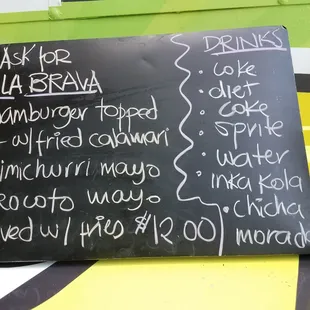 ASK for
LA BRAVA
hamburger topped
- w/ fried calamari
imichurri mayo
Rocoto mayo
ved w/ fries $12.00
DRINKS
· coke
· diet
· coke
· sprite
· water
· inka kola
· chicha
morada